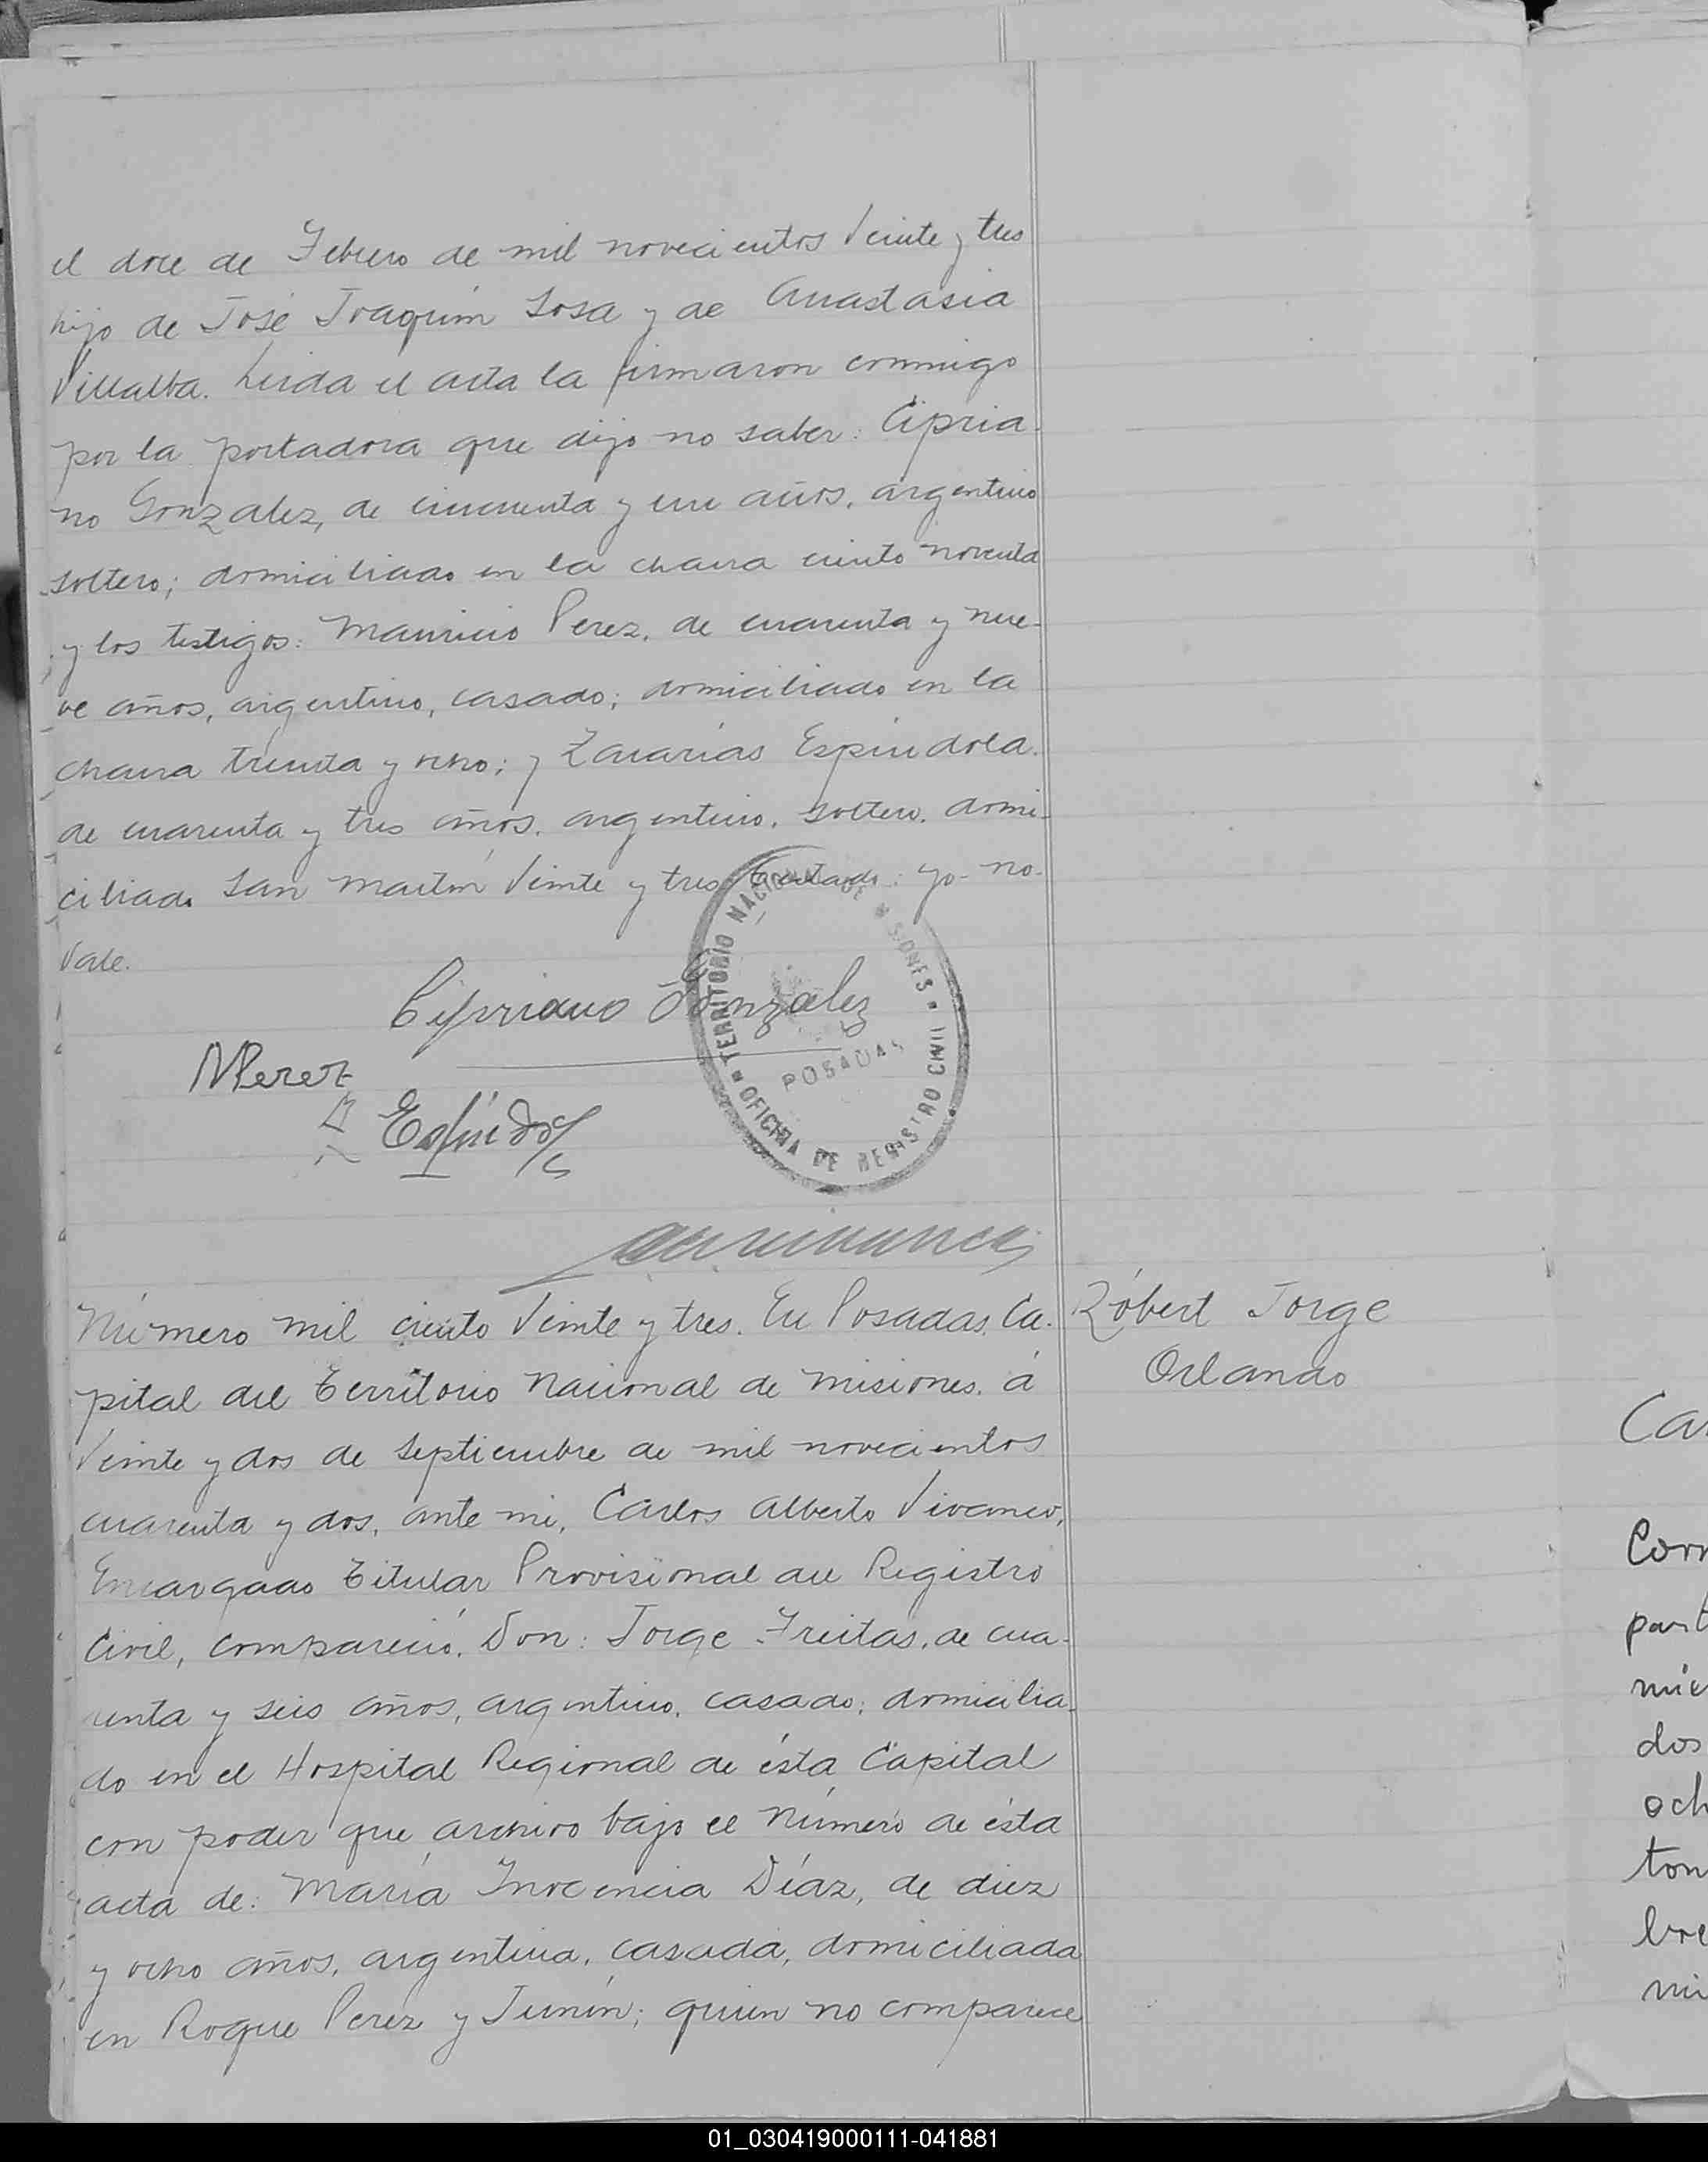 el doce de Febrero de mil novecientos Veinte y tres
hijo de José Joaquím Sosa y de Anastasia
Villalba. Leida el acta la firmaron conmigo
por la portadora que dijo no saber: Cipria-
no Gonzalez, de cincuenta y un años, argentino
soltero; domiciliado en la chacra ciento noventa
y los testigos: Mauricio Perez, de cuarenta y nue-
ve años, argentino, casado; domiciliado en la
chacra treinta y ocho; y Zacarías Espíndola.
de cuarenta y tres años, argentino, soltero, domi-
ciliado San Martín Veinte y tres Testado: yo- no-
Vale.
Cipriano Gonzalez
MPerez
Espíndola
TERRITORIO NACIONAL DE MISIONES
OFICINA DE REGISTRO CIVIL
POSADAS
Número mil ciento Veinte y tres. En Posadas, Ca-
pital del Territorio Nacional de Misiones, á
Veinte y dos de Septiembre de mil novecientos
cuarenta y dos, ante mi, Carlos Alberto Vivanco,
Encargado Titular Provisional del Registro
Civil, compareció, Don: Jorge Freitas, de cua-
renta y seis años, argentino, casado; domicilia-
do en el Hospital Regional de ésta Capital
con poder que archivo bajo el número de ésta
acta de: María Inocencia Díaz, de diez
y ocho años, argentina, casada, domiciliada
en Roque Perez y Junín; quien no comparece
Róbert Jorge
Orlando
Ca
Cor
part
dos
och
ton
bre